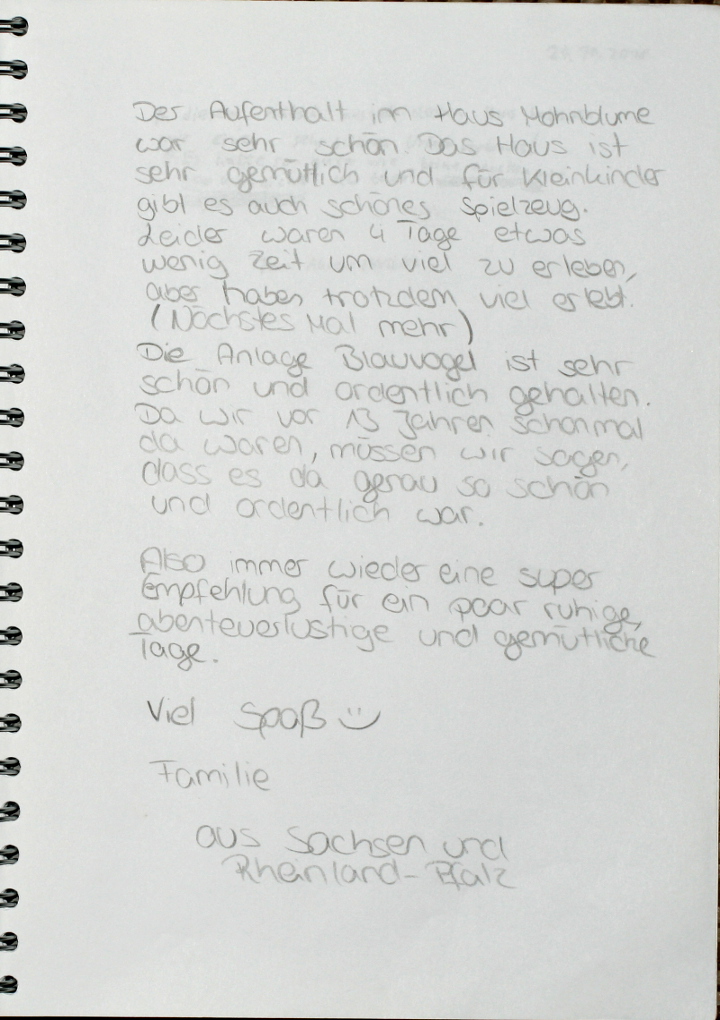 Der Aufenthalt im Haus Mohnblume
war sehr schön. Das Haus ist
sehr gemütlich und für Kleinkinder
gibt es auch schönes Spielzeug.
Leider waren 4 Tage etwas
wenig Zeit um viel zu erleben,
aber haben trotzdem viel erlebt.
(Nächstes Mal mehr)
Die Anlage Blauvogel ist sehr
schön und ordentlich gehalten.
Da wir vor 13 Jahren schonmal
da waren, müssen wir sagen,
dass es da genau so schön
und ordentlich war.
Also immer wieder eine super
Empfehlung für ein paar ruhige,
abenteuerlustige und gemütliche
Tage.
Viel Spaß
Familie
aus Sachsen und
Rheinland-Pfalz